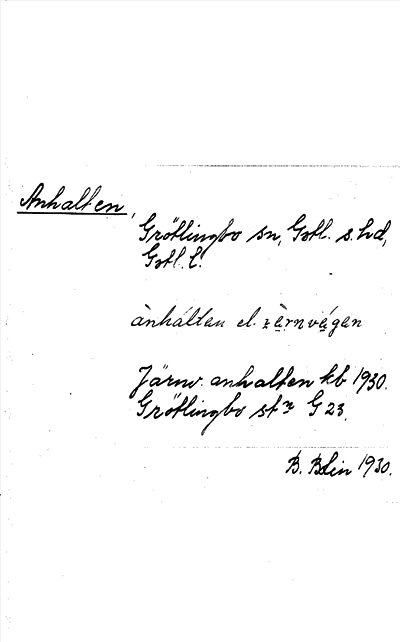 Anhalten,
Grötlingbo sn, Gotl. s. hd,
Gotl. l.
ànháltan el. zä̀rnvä́gen
Järnv. anhalten kb 1930.
Grötlingbo stn G 23.
B. Blin 1930.